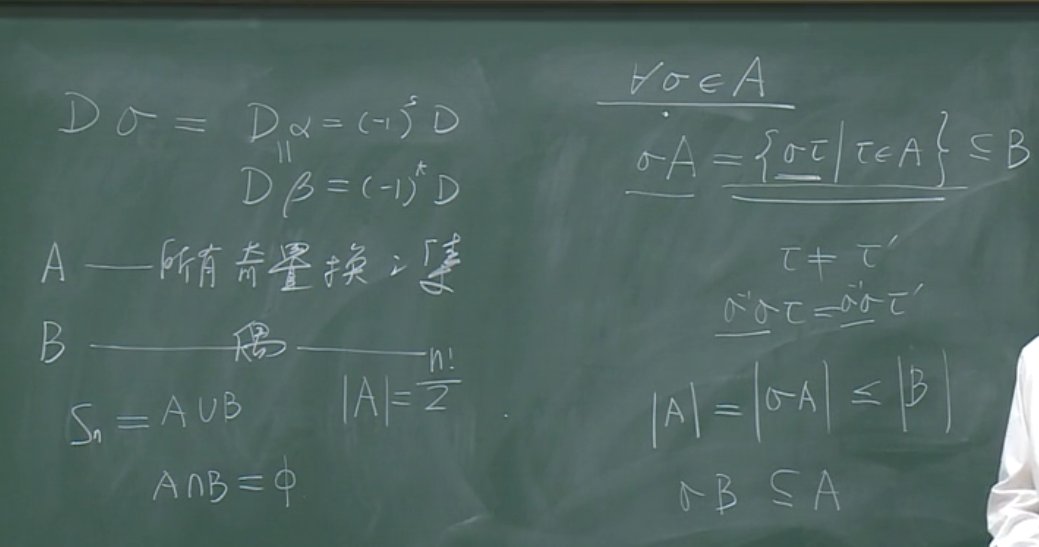 Dσ = Dα = (-1)^s D
||
Dβ = (-1)^t D
A —— 所有奇置换之集
B —— 偶 ——
S_n = A∪B |A| = n!/2
A∩B = φ
∀σ∈A
σA = {στ | τ∈A} ⊆ B
τ ≠ τ'
σ⁻¹στ = σ⁻¹στ'
|A| = |σA| ≤ |B|
σB ⊆ A